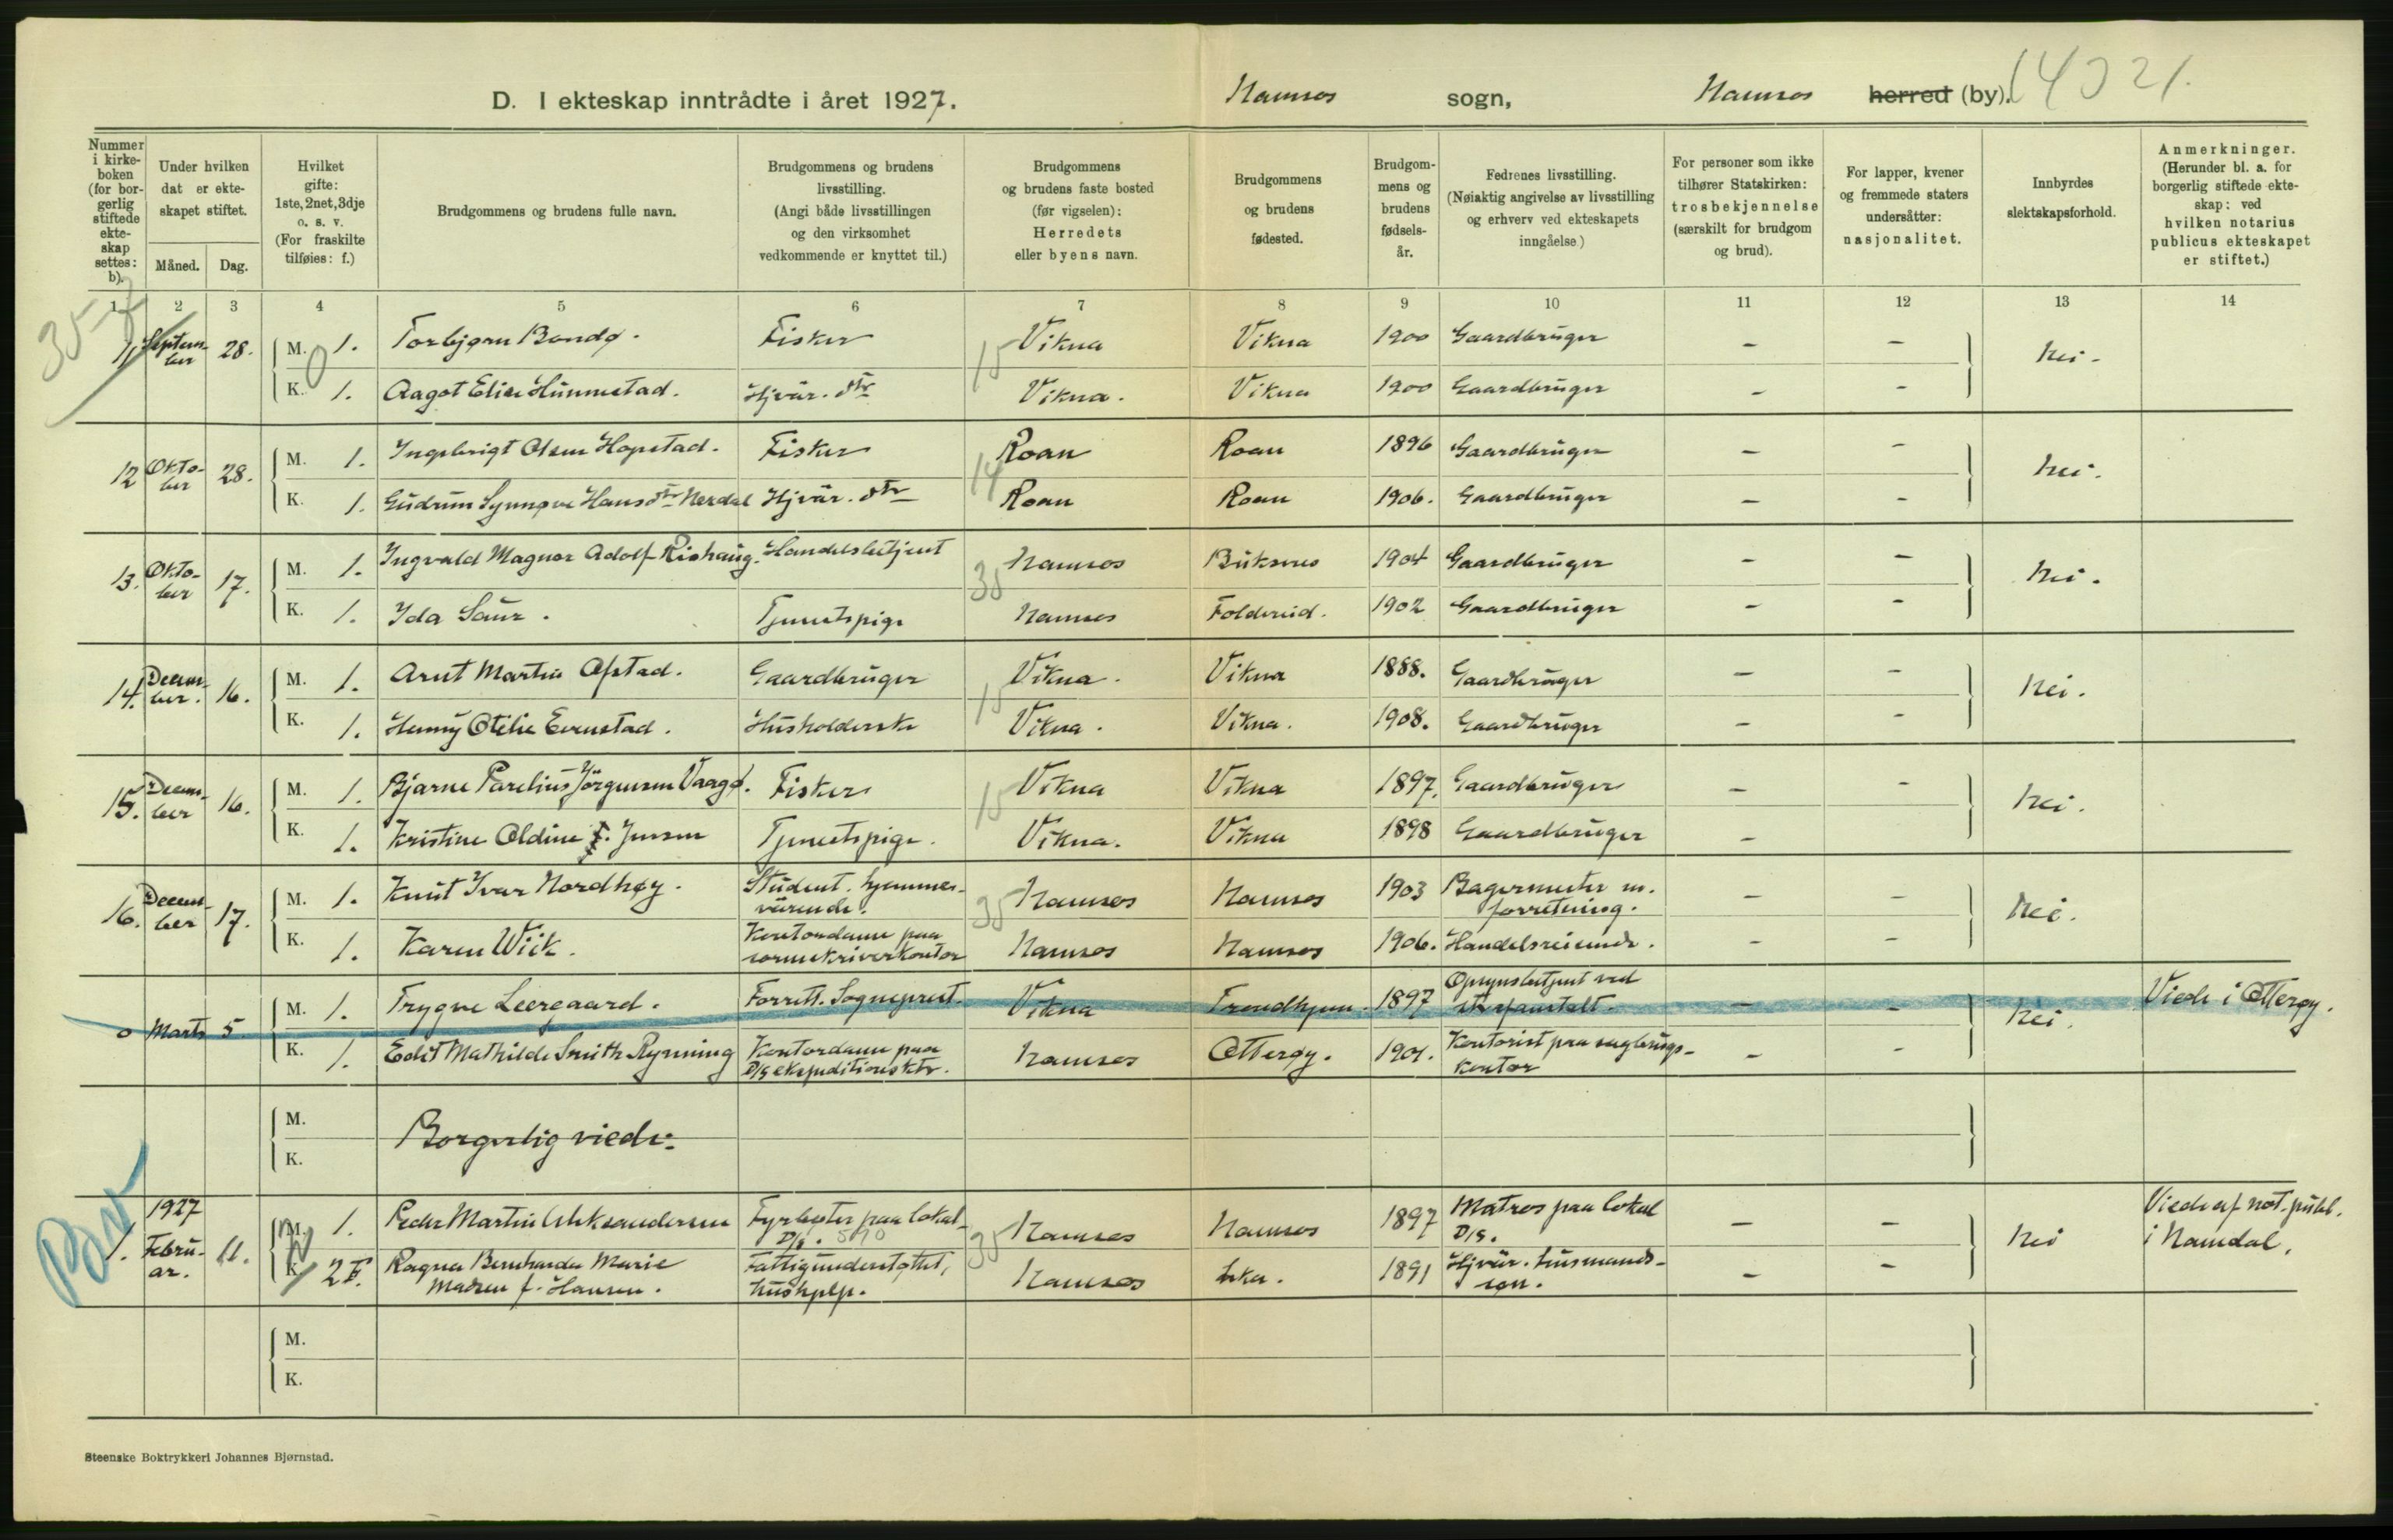 D. I ekteskap inntrådte i året 1927.
Namsos sogn, Namsos herred (by). 14021.
Nummer i kirkeboken (for borgerlig stiftede ekteskap settes: b).
Under hvilken dat er ekteskapet stiftet.
Måned. Dag.
Hvilket gifte: 1ste, 2net, 3dje o. s. v. (For fraskilte tilføies: f.)
Brudgommens og brudens fulle navn.
Brudgommens og brudens livsstilling. (Angi både livsstillingen og den virksomhet vedkommende er knyttet til.)
Brudgommens og brudens faste bosted (før vigselen): Herredets eller byens navn.
Brudgommens og brudens fødested.
Brudgommens og brudens fødselsår.
Fedrenes livsstilling. (Nøiaktig angivelse av livsstilling og erhverv ved ekteskapets inngåelse)
For personer som ikke tilhører Statskirken: trosbekjennelse (særskilt for brudgom og brud).
For lapper, kvener og fremmede staters undersåtter: nasjonalitet.
Innbyrdes slektskapsforhold.
Anmerkninger. (Herunder bl. a. for borgerlig stiftede ekteskap: ved hvilken notarius publicus ekteskapet er stiftet.)
1 2 3 4 5 6 7 8 9 10 11 12 13 14
11 September 28. M. 1. Torbjørn Bondø. Fisker 15 Vikna Vikna 1900 Gaardbruger - - Nei -
K. 1. Aagot Elise Hunnestad. Hjvær. dtr Vikna. Vikna 1900 Gaardbruger - -
12 Oktober 28. M. 1. Ingebrigt Olsen Hopstad. Fisker 14 Roan Roan 1896 Gaardbruger - - Nei.
K. 1. Gudrun Synnøve Hansdtr Nerdal Hjvær. dtr Roan Roan 1906. Gaardbruger - -
13. Oktober 17. M. 1. Ingvald Magnor Adolf Rishaug. Handelsbetjent 35 Namsos Buksnes 1904 Gaardbruger - - Nei.
K. 1. Ida Saur. Tjenestpige Namsos Foldereid. 1902 Gaardbruger - -
14. December. 16. M. 1. Arnt Martin Ofstad. Gaardbruger 15 Vikna. Vikna 1888. Gaardbruger - - Nei.
K. 1. Henny Otelie Evenstad. Husholderske Vikna. Vikna. 1908. Gaardbruger - -
15. December 16. M. 1. Bjarne Parelius Jörgensen Vaagø. Fisker 15 Vikna Vikna 1897. Gaardbruger - - Nei.
K. 1. Kristine Oldine f. Jensen Tjenestpige. Vikna. Vikna 1898 Gaardbruger -
16. December 17. M. 1. Knut Ivar Nordhøy. Student. hjemmeværende. 35 Namsos Namsos 1903 Bagermester m. forretning. - - Nei.
K. 1. Karen Wiik. Kontordame paa sorenskriverkontor Namsos Namsos 1906. Handelsreisende. - -
0 Marts 5 M. 1. Trygve Leergaard. Forrett. Sogneprest. Vikna Trondhjem. 1897 Opsynsbetjent ved straffanstalt. - - Nei. Viede i Otterøy.
K. 1. Edit Mathilde Smith Rynning Kontordame paa D/s ekspeditionsktr. Namsos Otterøy. 1901. Kontorist paa sagbrugskontor - -
M.
K. Borgerlig viede:
1. 1927 Februar. 11. M. 1. Peder Martin Aleksandersen Fyrbøter paa lokal D/s. 35 Namsos Namsos 1897 Matros paa lokal D/s. - - Nei Viede af not. publ. i Namdal.
K. 2 F. Ragna Bernharda Marie Madsen f. Hansen. Fattigunderstøttet, hushjelp. Namsos Leka. 1891 Hjvær. husmandssøn. - -
M.
K.
Steenske Boktrykkeri Johannes Bjørnstad.